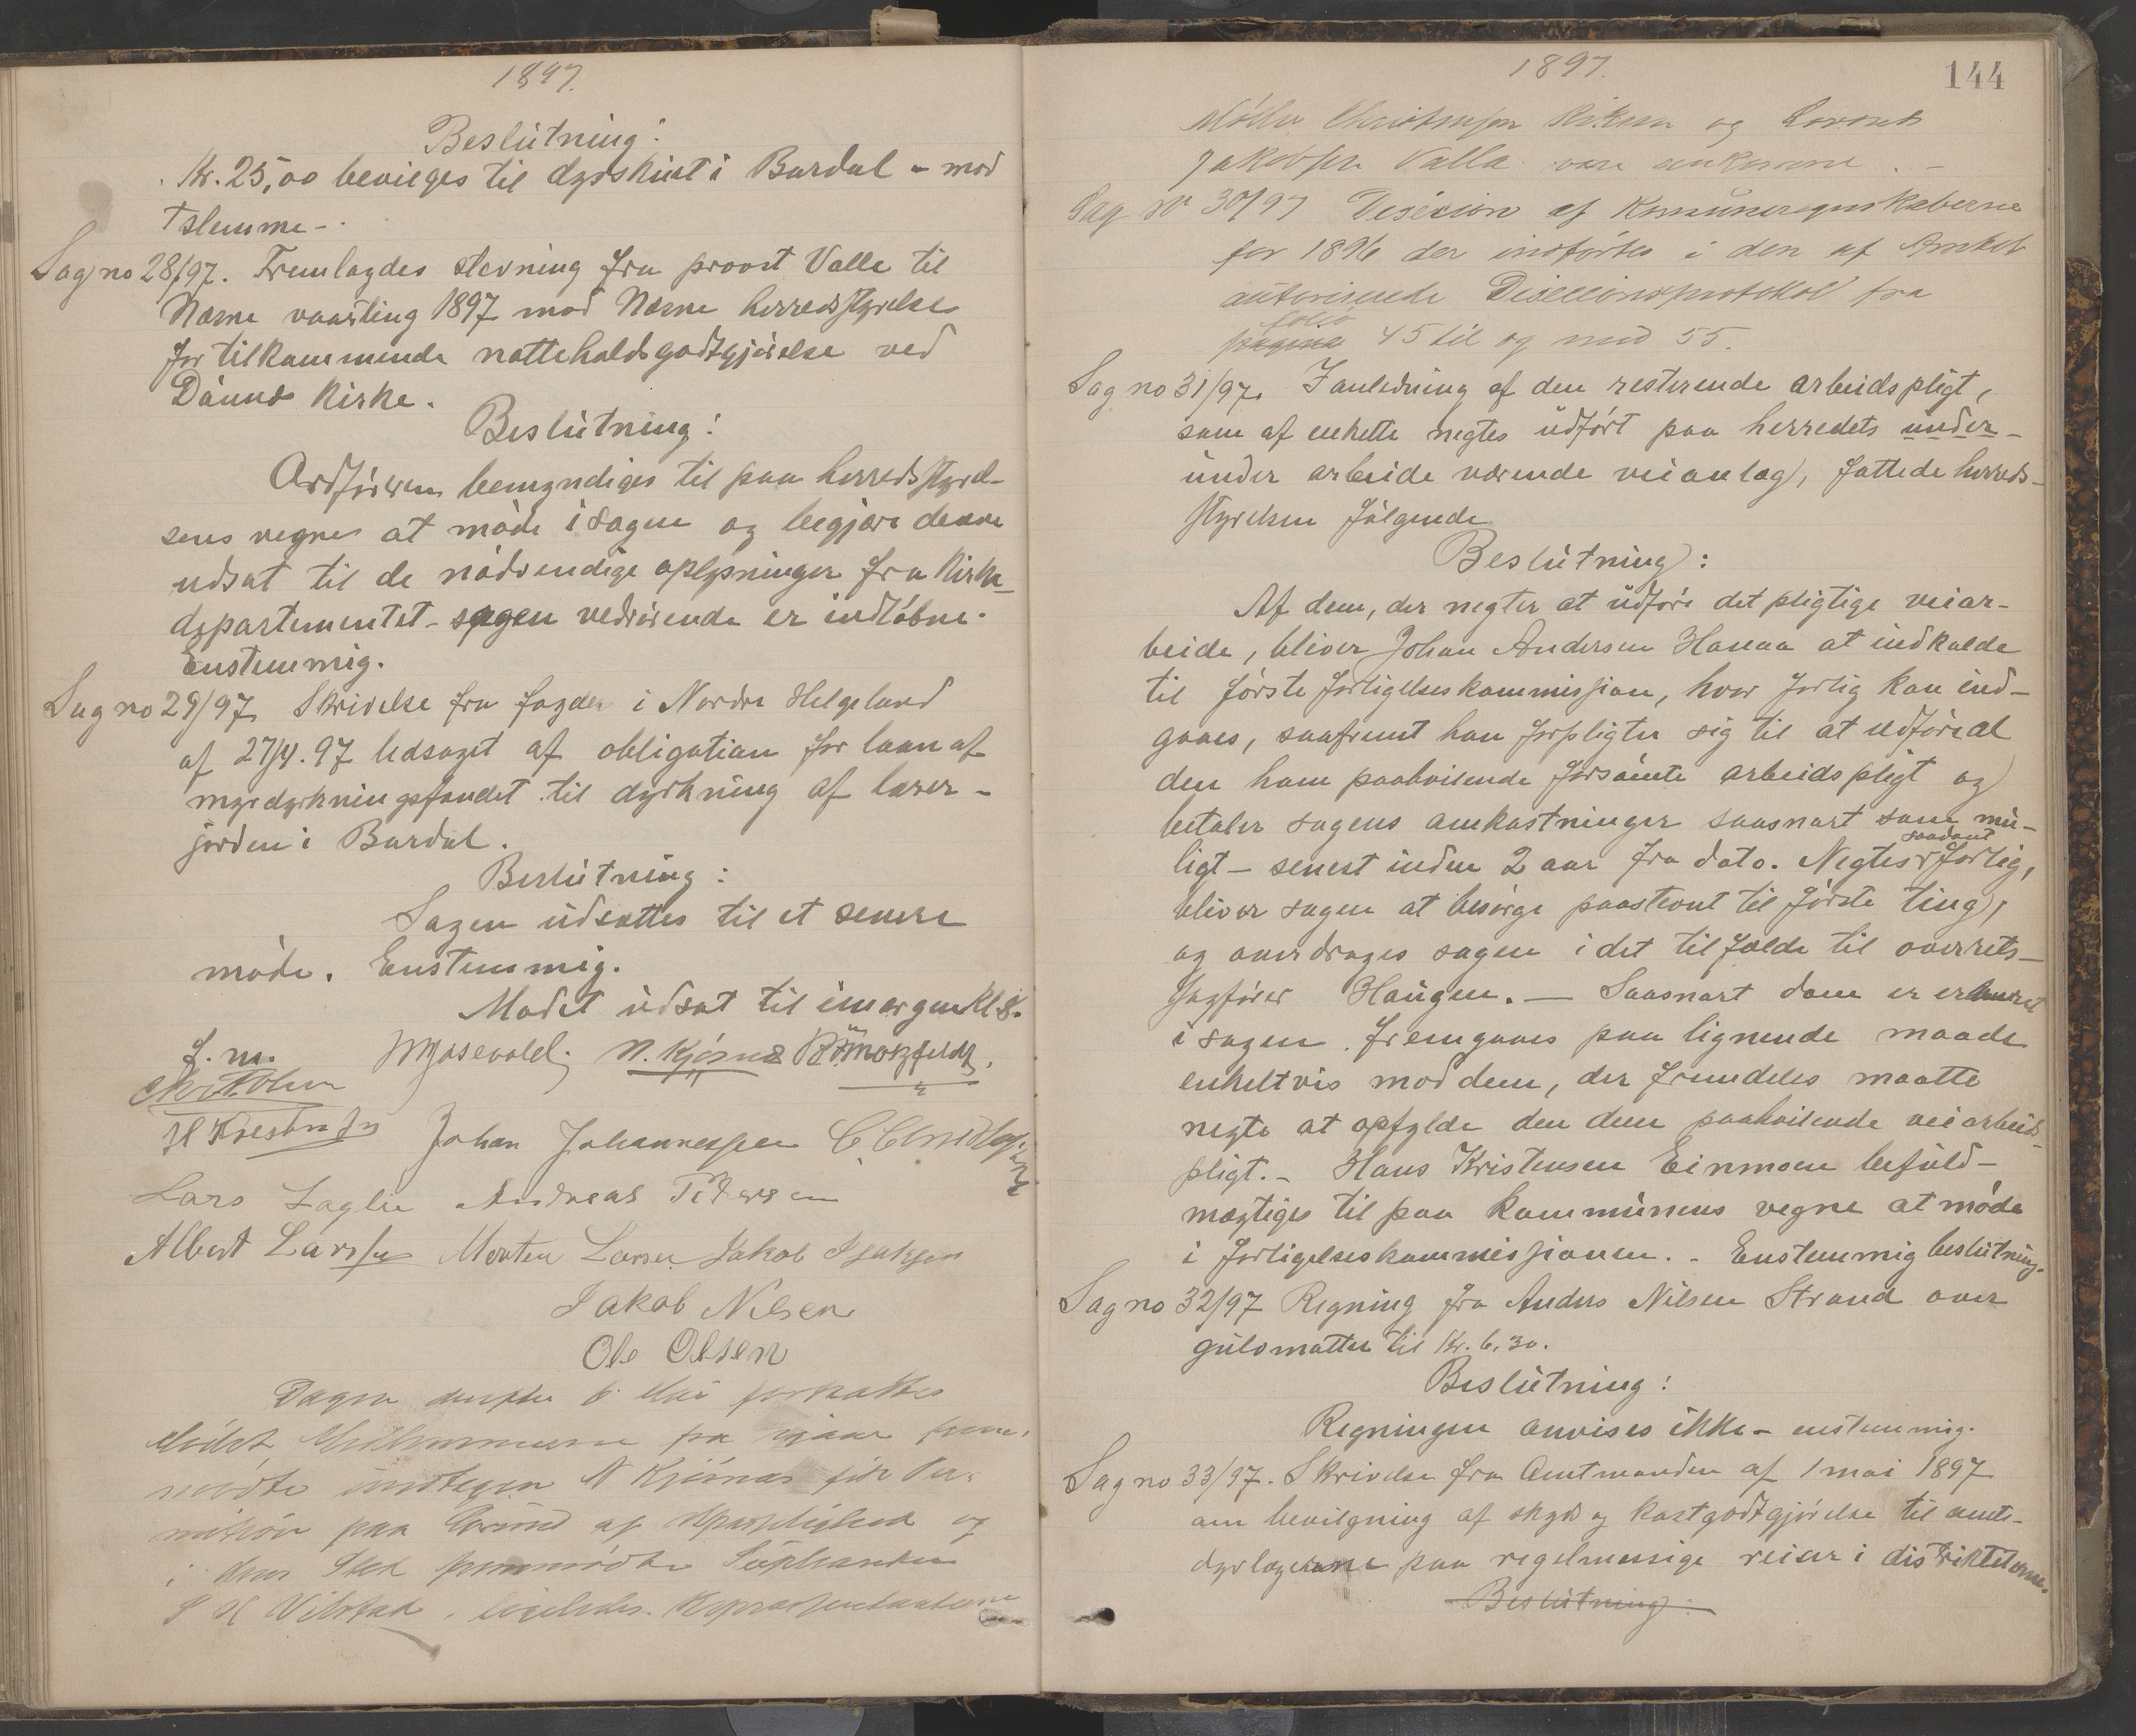 1897.
Beslutning:
Kr. 25,00 bevilges til dyrskuet i Bardal - mod
1 stemme -.
Sag no 28/97. Fremlagdes stevning fra provst Valle til
Næsne vaarting 1897 mod Næsne herredsstyrelse
for tilkommende natteholdsgodtgjørelse ved
Dønnes Kirke.
Beslutning:
Ordføreren bemyndiges til paa herredsstyrel-
sens vegne at møde i sagen og begjære denne
udsat til de nødvendige oplysninger fra Kirke-
departementet - sagen vedrørende er indløbne.
Enstemmig.
Sag no 29/97. Skrivelse fra fogden i Nordre Helgeland
af 27/4.97 ledsaget af obligation for laan af
myrdyrkningsfondet til dyrkning af lærer-
jorden i Bardal.
Beslutning:
Sagen udsattes til et senere
møde. Enstemmig.
Mødet udsat til imorgen Kl 8.
N. Kjørnes
Johan Johannessen
Lars Andreas Petersen
Albert Larssen Morten Larsen Jakob Isaksen
Jakob Nilsen
Ole Olsen
Dagen derefter 6 Mai fortsattes
Mødet, Medlemmerne fra igaar frem-
mødte undtagen N Kjørnes
paa Grund af og
i dens Sted fremmødte Suppleanten
ligeledes Repræsentanterne
1897.
144
og
Jakobsen Valla vare ankomne. -
Sag No 30/97 Desision af Komuneregnskaberne
for 1896 der indførtes i den af Amtet
autoriserede Desisionsprotokol fra
folio
pagina 45 til og med 55.
Sag no 31/97. I anledning af den resterende arbeidspligt,
som af enkelte negtes udført paa herredets under-
under arbeide værende veianlæg, fattede herreds-
styrelsen følgende
Beslutning:
Af dem, der negter at udføre det pligtige veiar-
beide, bliver Johan Andersen Hanaa at indkalde
til første forligelseskommission, hvor forlig kan ind-
gaaes, saafremt han forpligter sig til at udføre al
den ham paahvilende forsømte arbeidspligt og
betaler sagens omkostninger saasnart som mu-
saadant
ligt - senest inden 2 aar fra dato. Negtes forlig,
bliver sagen at besørge paastevnt til første ting,
og overdrages sagen i det tilfælde til overrets-
sagfører Haugen. - Saasnart dom er erhvervet
i sagen fremgaaes paa lignende maade
enkeltvis mod dem, der fremdeles maatte
negte at opfylde den dem paahvilende veiarbeids-
pligt. - Hans Kristensen Einmoen befuld-
mægtiges til paa kommunens vegne at møde
i forligelseskommissionen. - Enstemmig beslutning.
Sag no 32/97 Regning fra Anders Nilsen Strand over
gulvmatter til Kr. 6.30.
Beslutning:
Regningen anvises ikke - enstemmig.
Sag no 33/97. Skrivelse fra Amtmanden af 1 mai 1897
om bevilgning af skyds og kostgodtgjørelse til amts-
dyrlægerne paa regelmæssige reiser i distrikterne.
Beslutning: